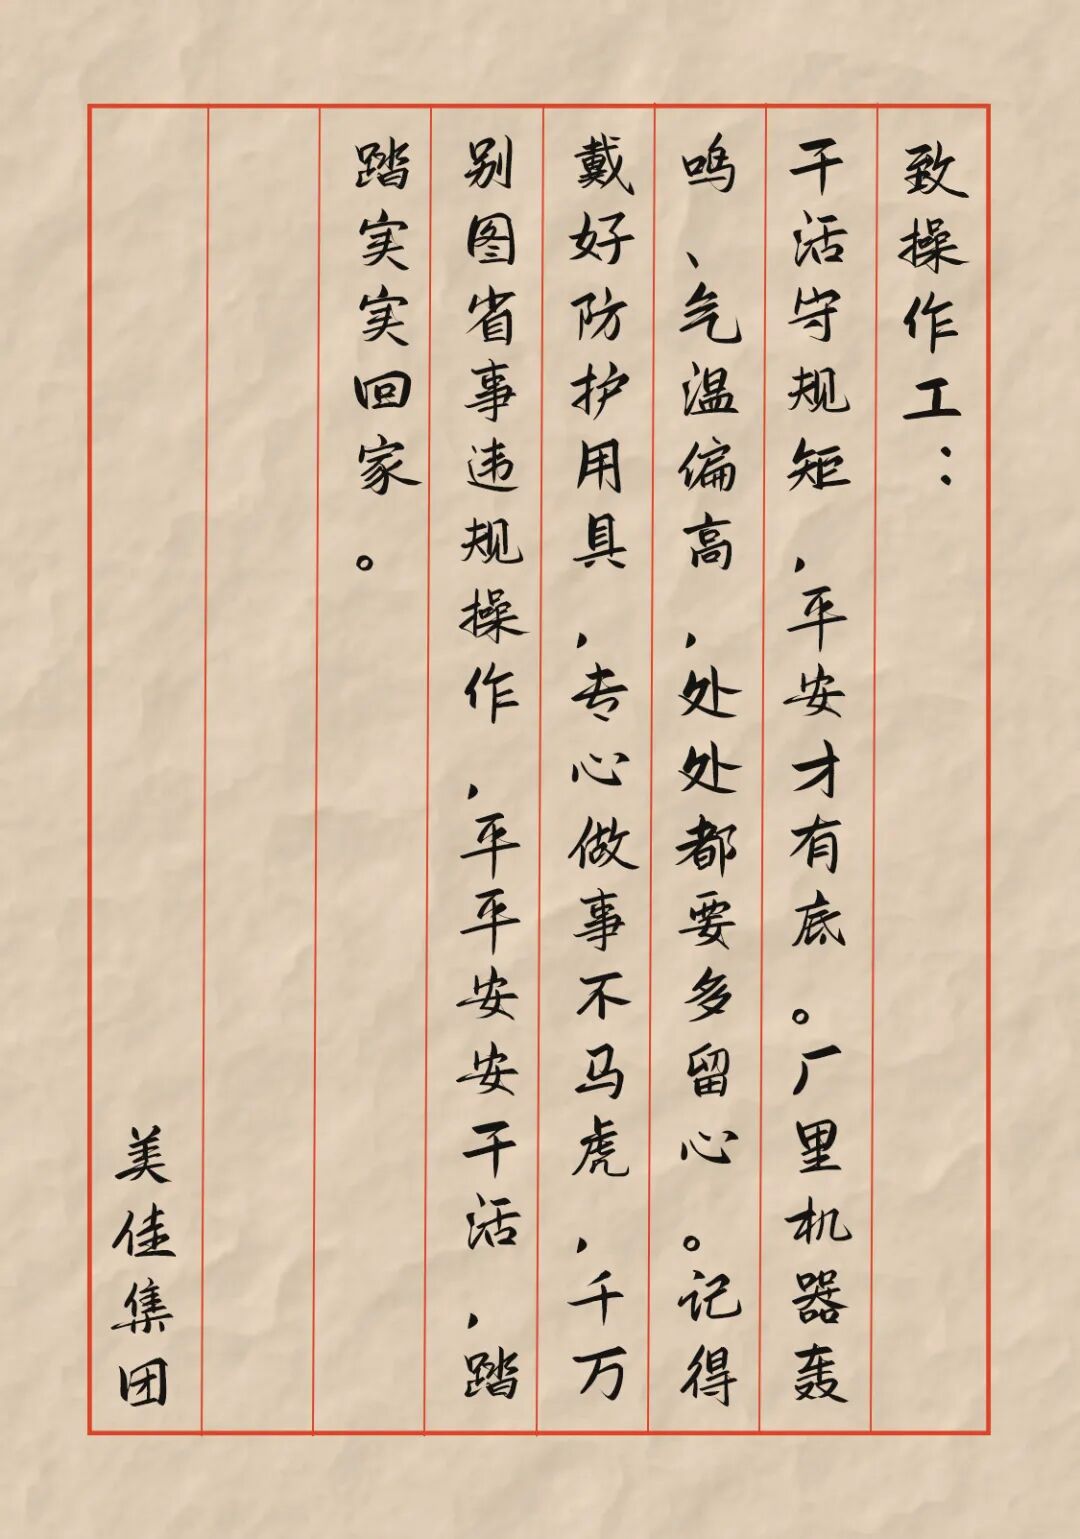 致操作工：
干活守规矩，平安才有底。厂里机器轰
鸣、气温偏高，处处都要多留心。记得
戴好防护用具，专心做事不马虎，千万
别图省事违规操作，平平安安干活，踏
踏实实回家。
美佳集团